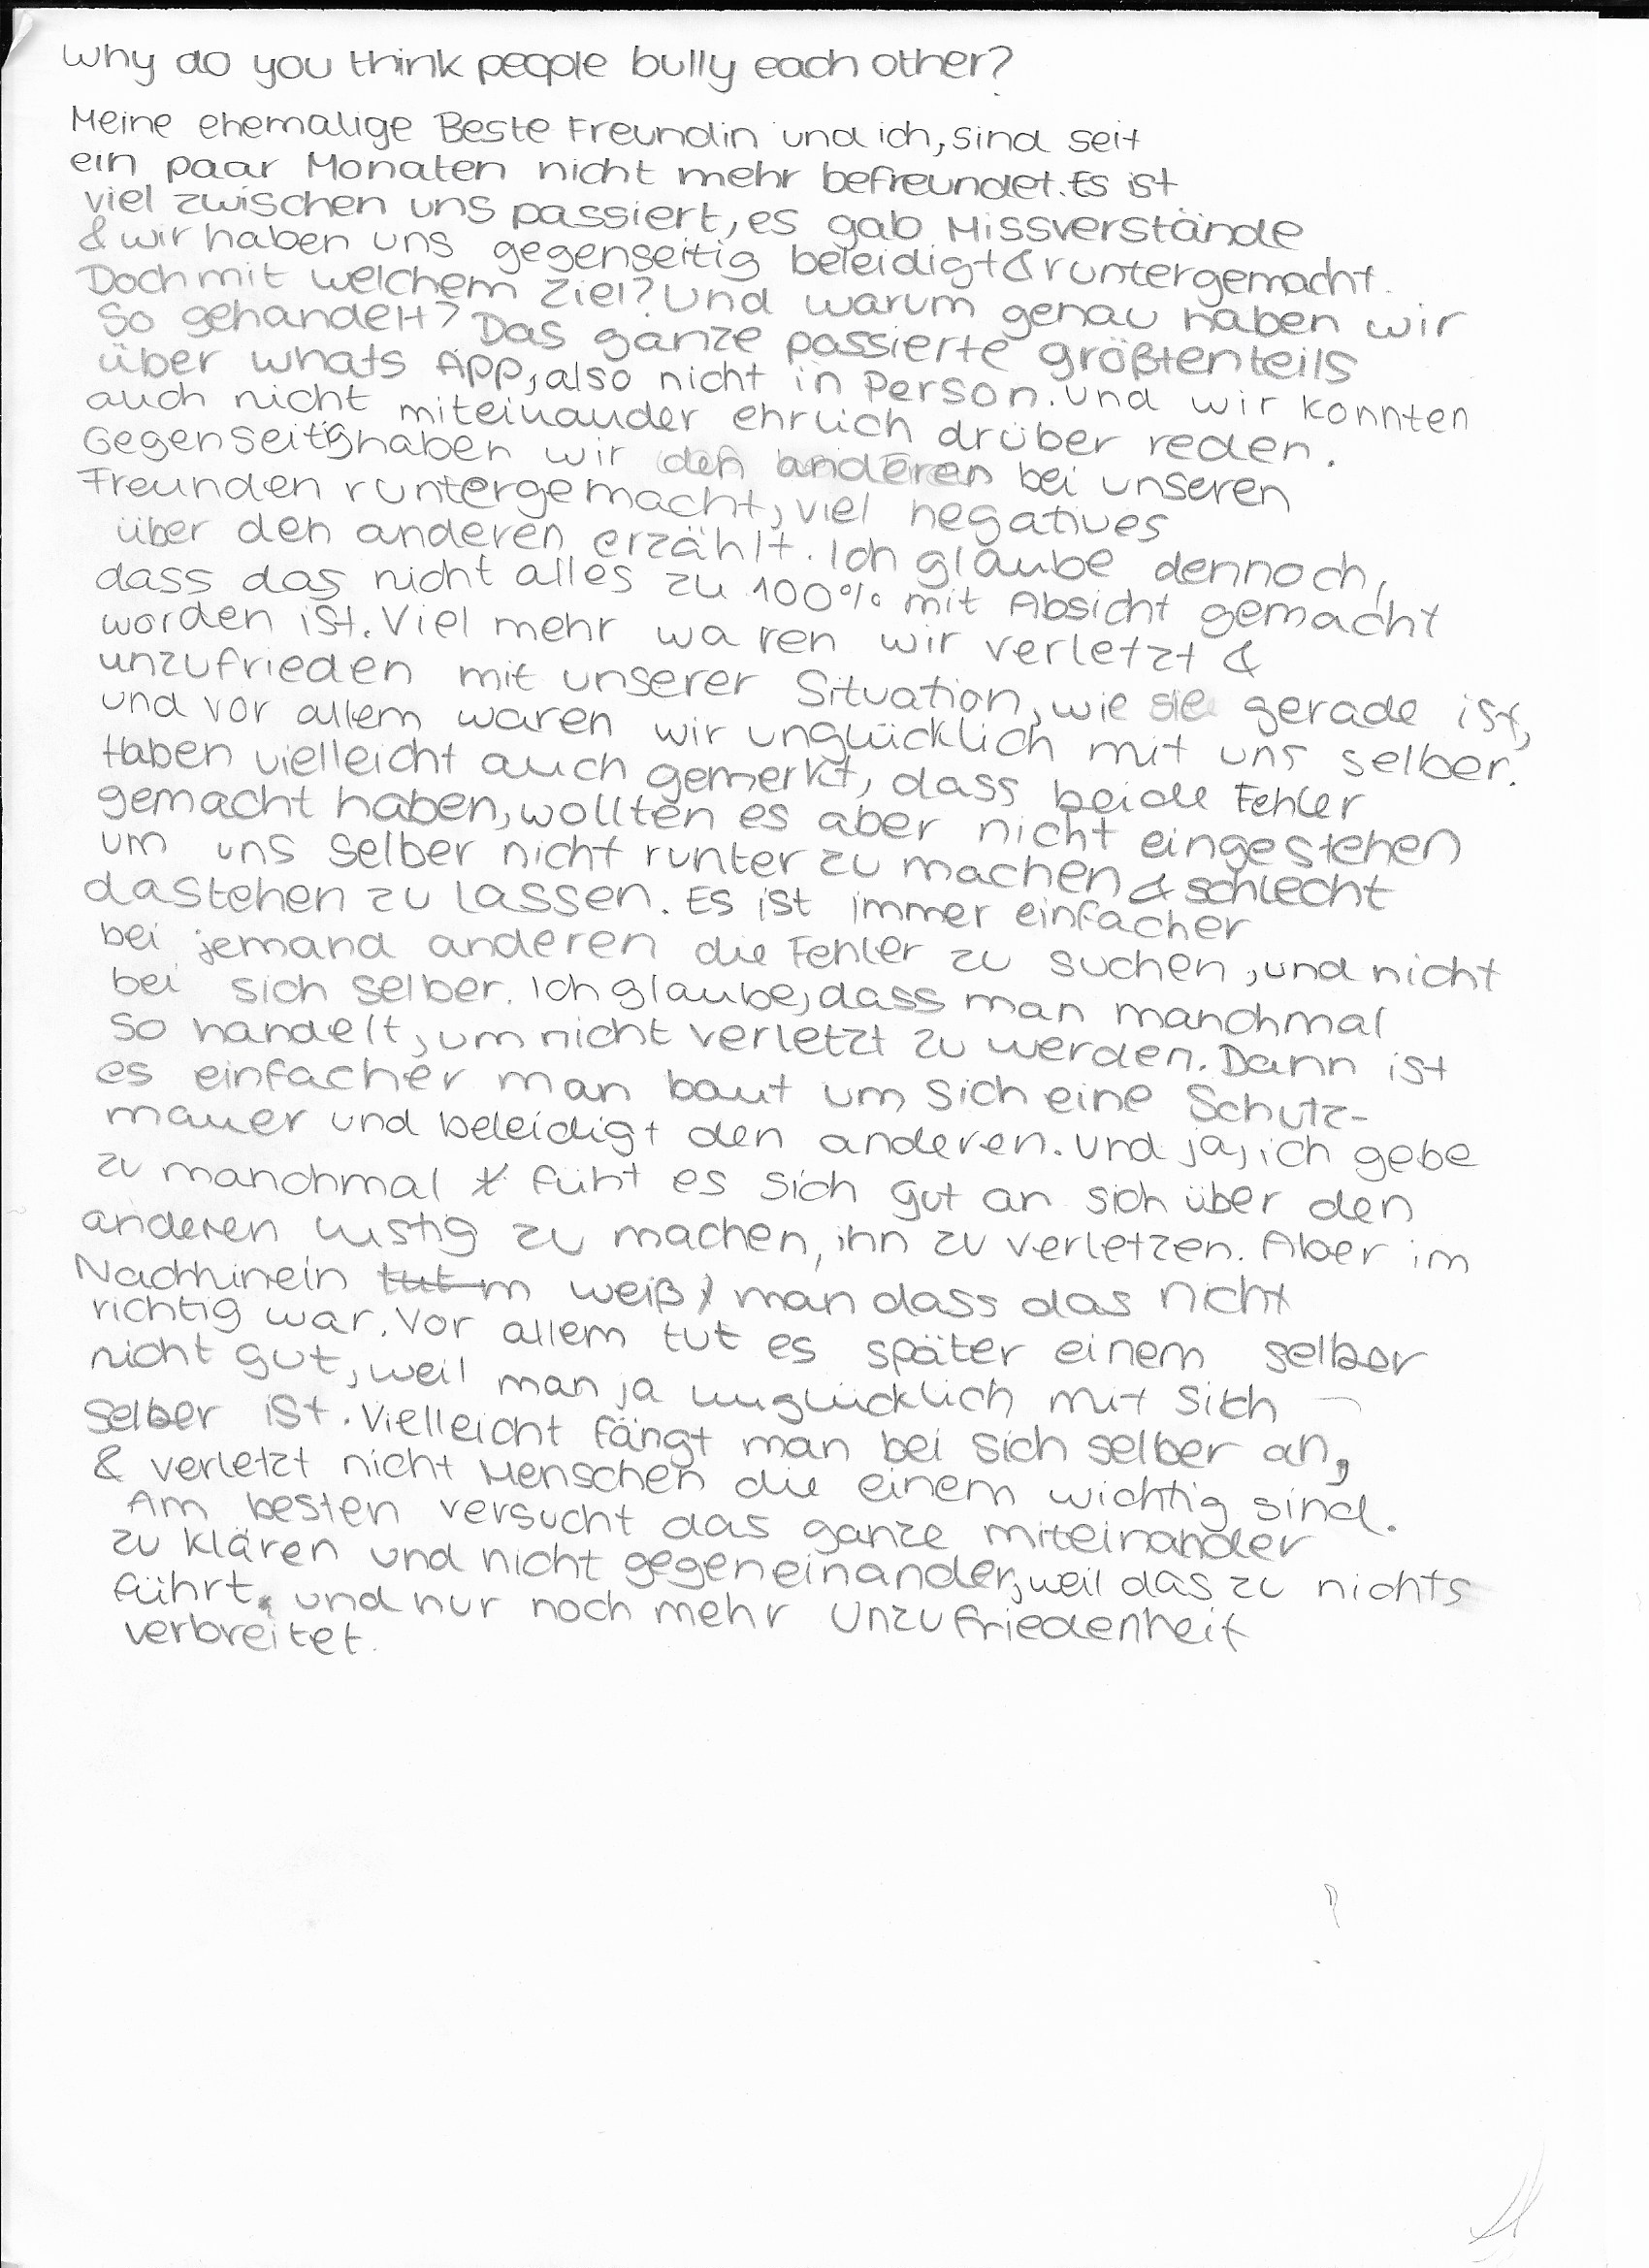 Why do you think people bully each other?
Meine ehemalige Beste Freundin und ich, sind seit
ein paar Monaten nicht mehr befreundet. Es ist
viel zwischen uns passiert, es gab Missverstände
& wir haben uns gegenseitig beleidigt & runtergemacht.
Doch mit welchem Ziel? Und warum genau haben wir
so gehandelt? Das ganze passierte größtenteils
über whats App, also nicht in Person. und wir konnten
auch nicht miteinander ehrlich drüber reden.
Gegenseitig haben wir den anderen bei unseren
Freunden runtergemacht, viel negatives
über den anderen erzählt. Ich glaube dennoch,
dass das nicht alles zu 100% mit Absicht gemacht
worden ist. Viel mehr waren wir verletzt &
unzufrieden mit unserer Situation, wie sie gerade ist,
und vor allem waren wir unglücklich mit uns selber.
Haben vielleicht auch gemerkt, dass beide Fehler
gemacht haben, wollten es aber nicht eingestehen
um uns selber nicht runter zu machen & schlecht
dastehen zu lassen. Es ist immer einfacher
bei jemand anderen die Fehler zu suchen, und nicht
bei sich selber. Ich glaube, dass man manchmal
so handelt, um nicht verletzt zu werden. Dann ist
es einfacher man baut um sich eine Schutz-
mauer und beleidigt den anderen. und ja, ich gebe
zu manchmal füht es sich gut an sich über den
anderen lustig zu machen, ihn zu verletzen. Aber im
Nachhinein tut m weiß man dass das nicht
richtig war. Vor allem tut es später einem selber
nicht gut, weil man ja unglücklich mit sich
selber ist. Vielleicht fängt man bei sich selber an,
& verletzt nicht Menschen die einem wichtig sind.
Am besten versucht das ganze miteinander
zu klären und nicht gegeneinander, weil das zu nichts
führt. und nur noch mehr Unzufriedenheit
verbreitet.